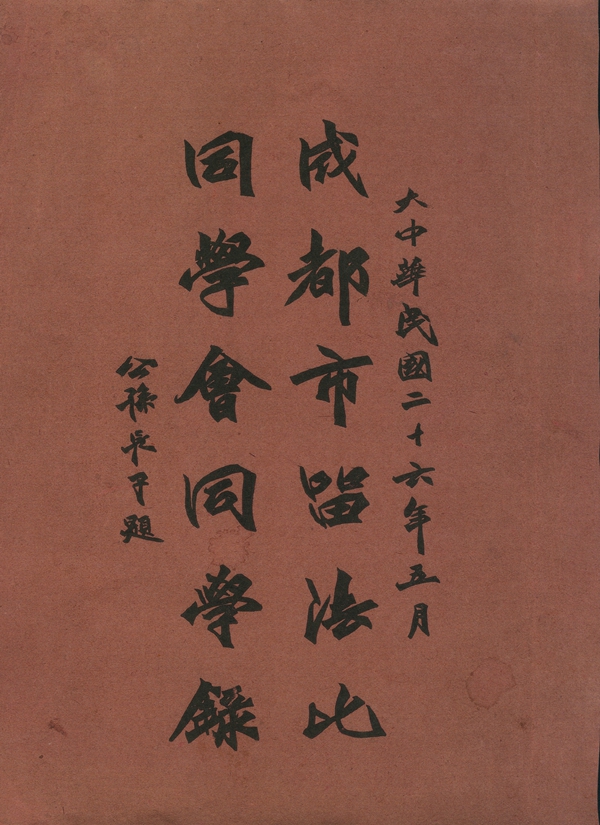 大中華民國二十六年五月
成都市畄法比
同學會同學錄
公孫長子題